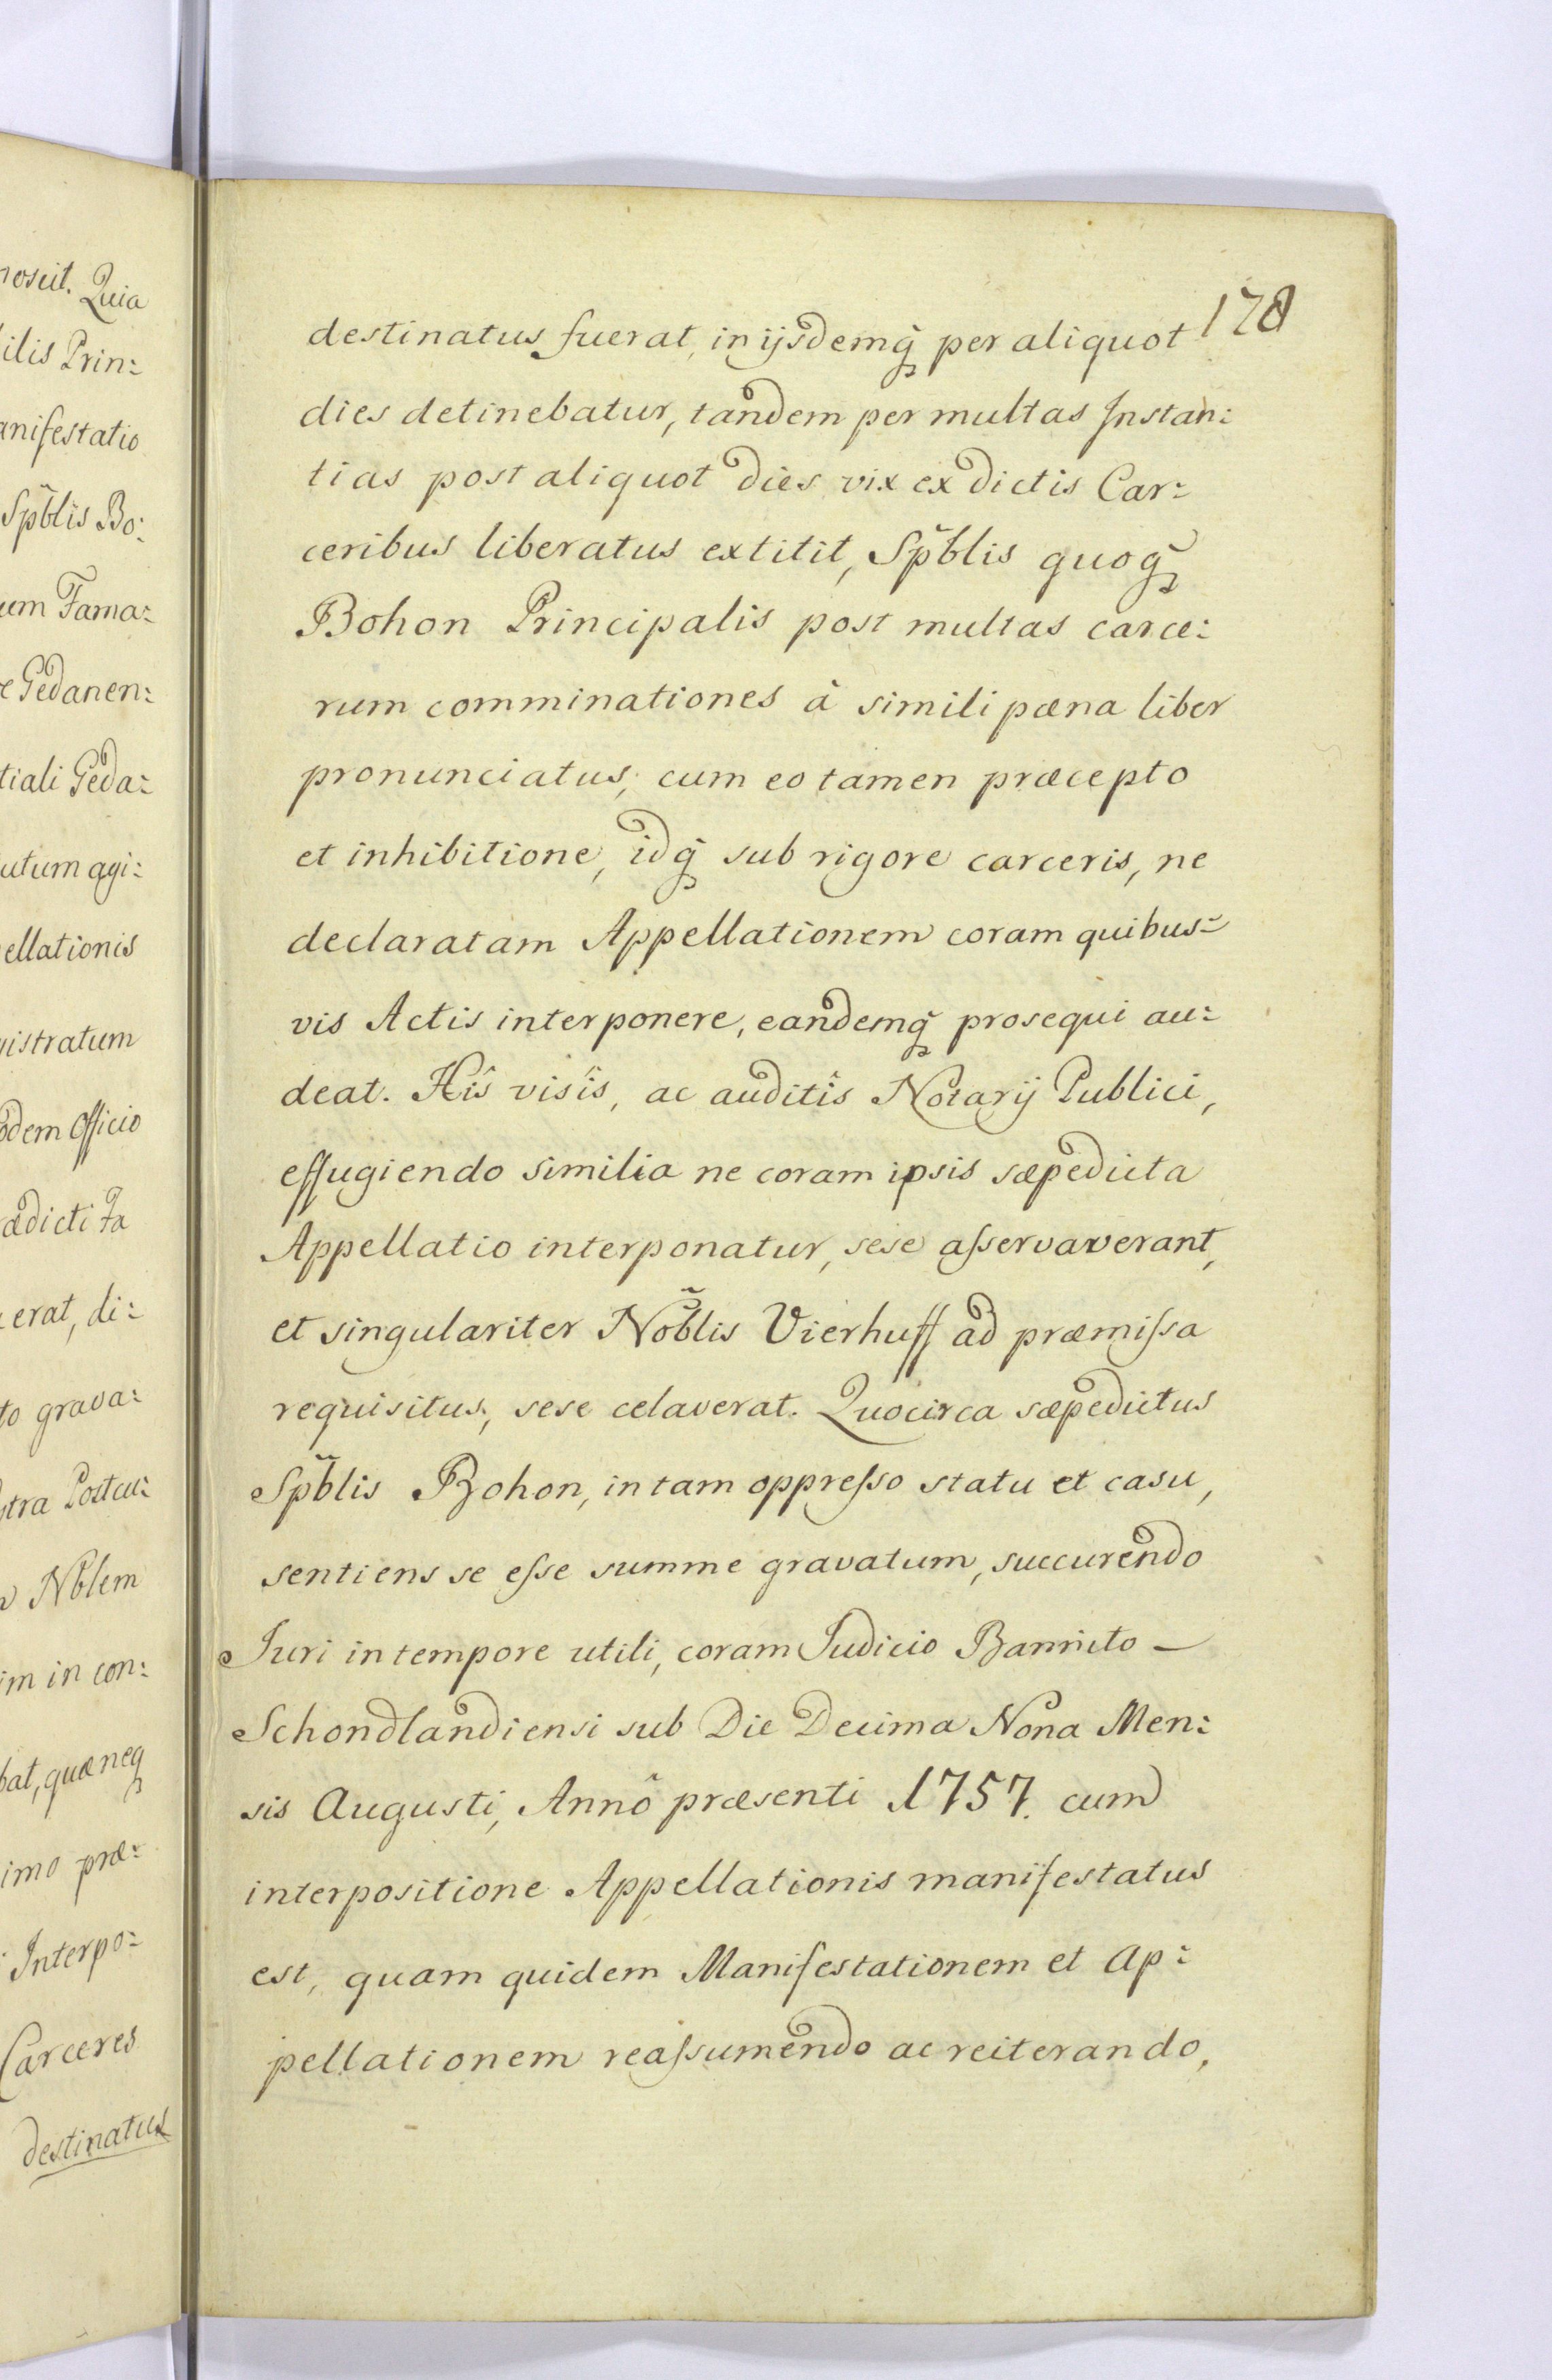 noscit. Quia
ilis Prin:
anifestatio
Spblis Bo:
um Fama:
e Gedanen:
tiali Geda:
utum agi:
ellationis
gistratum
odem Officio
ædicti Fa
erat, di:
to grava:
Postcu:
Nblem
im in con:
bat, quæ neq
imo præ:
Interpo:
Carceres
destinatus
178
destinatus fuerat, in ijsdemq̀ per aliquot
dies detinebatur, tandem per multas Instan:
tias post aliquot dies vix ex dictis Car:
ceribus liberatus extitit, Sp̃blis quoq̀
Bohon Principalis post multas carce:
rum comminationes à simili pæna liber
pronunciatus, cum eo tamen præcepto
et inhibitione, idq̀ sub rigore carceris, ne
declaratam Appellationem coram quibus:
vis Actis interponere, eandemq̀ prosequi au:
deat. Hîs visîs, ac auditîs Notarij Publici,
effugiendo similia ne coram ipsis sæpedicta
Appellatio interponatur, sese aſservaverant,
et singulariter Nõblis Vierhuff ad præmiſsa
requisitus, sese celaverat. Quocirca sæpedictus
Sp̃blis Bohon, in tam oppreſso statu et casu,
sentiens se eſse summe gravatum, succurendo
Juri in tempore utili, coram Judicio Bannito -
Schondlandiensi sub Die Decima Nona Men:
sis Augusti, Annô præsenti 1757. cum
interpositione Appellationis manifestatus
est, quam quidem Manifestationem et Ap:
pellationem reaſsumendo ac reiterando,